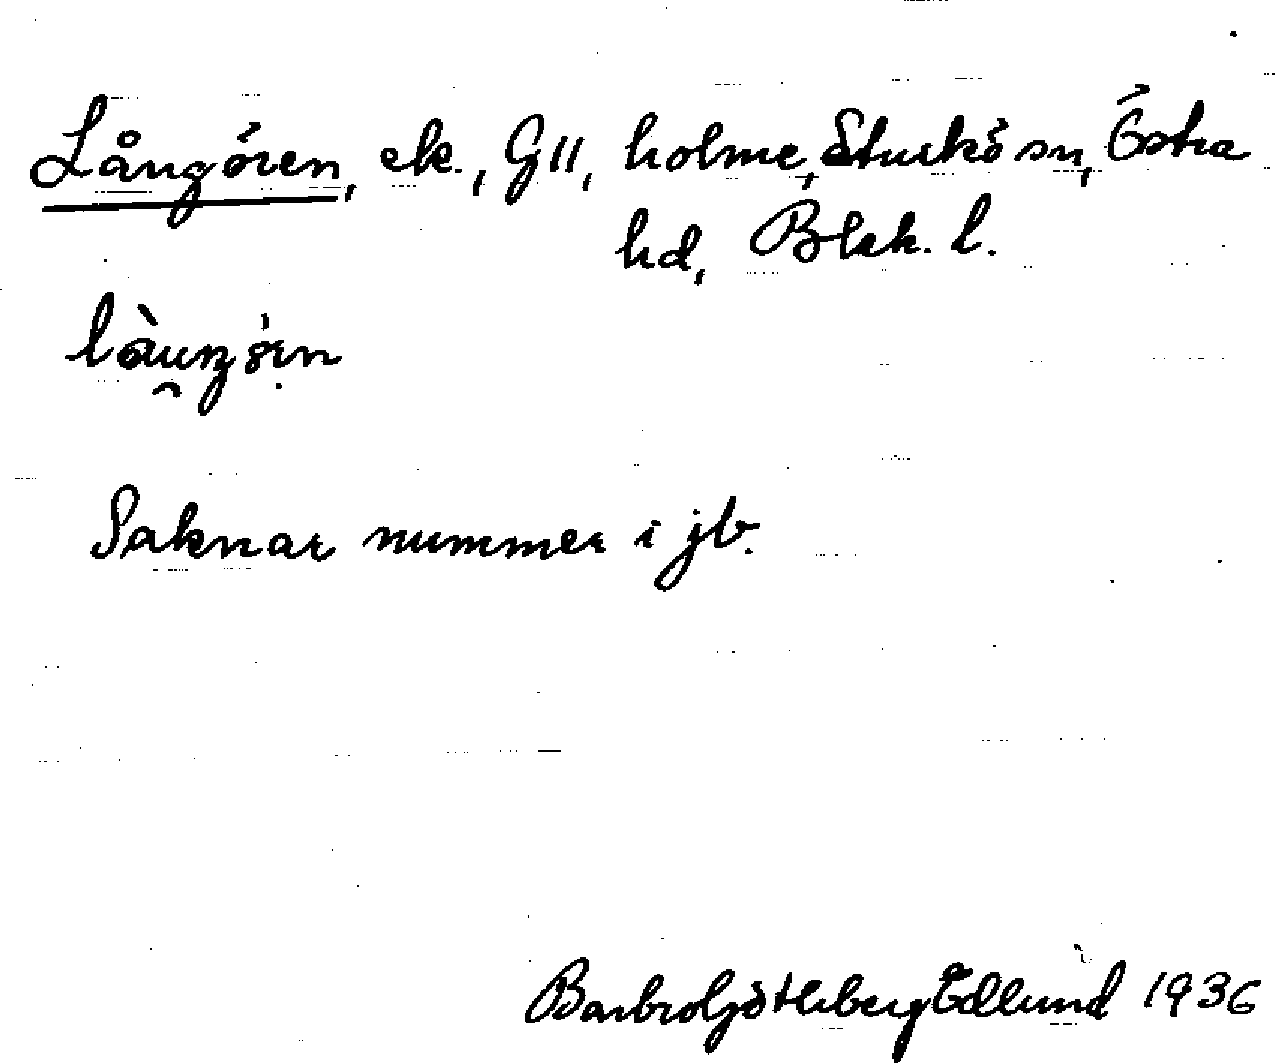 Långören, ek., G11, holme, Sturkö sn, Östra
hd, Blek. l.
Saknar nummer i jb.
Barbro Götlberg Edlund 1936